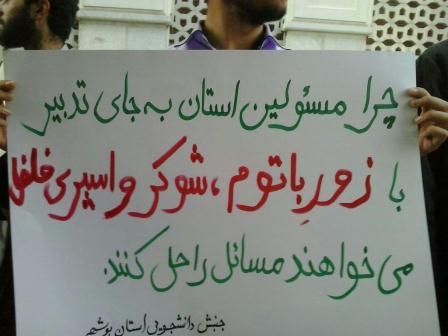 چرا مسئولین استان به جای تدبیر
با زورِ باتوم، شوکر و اسپری فلفل
می خواهند مسائل را حل کنند.
جنبش دانشجویی استان بوشهر